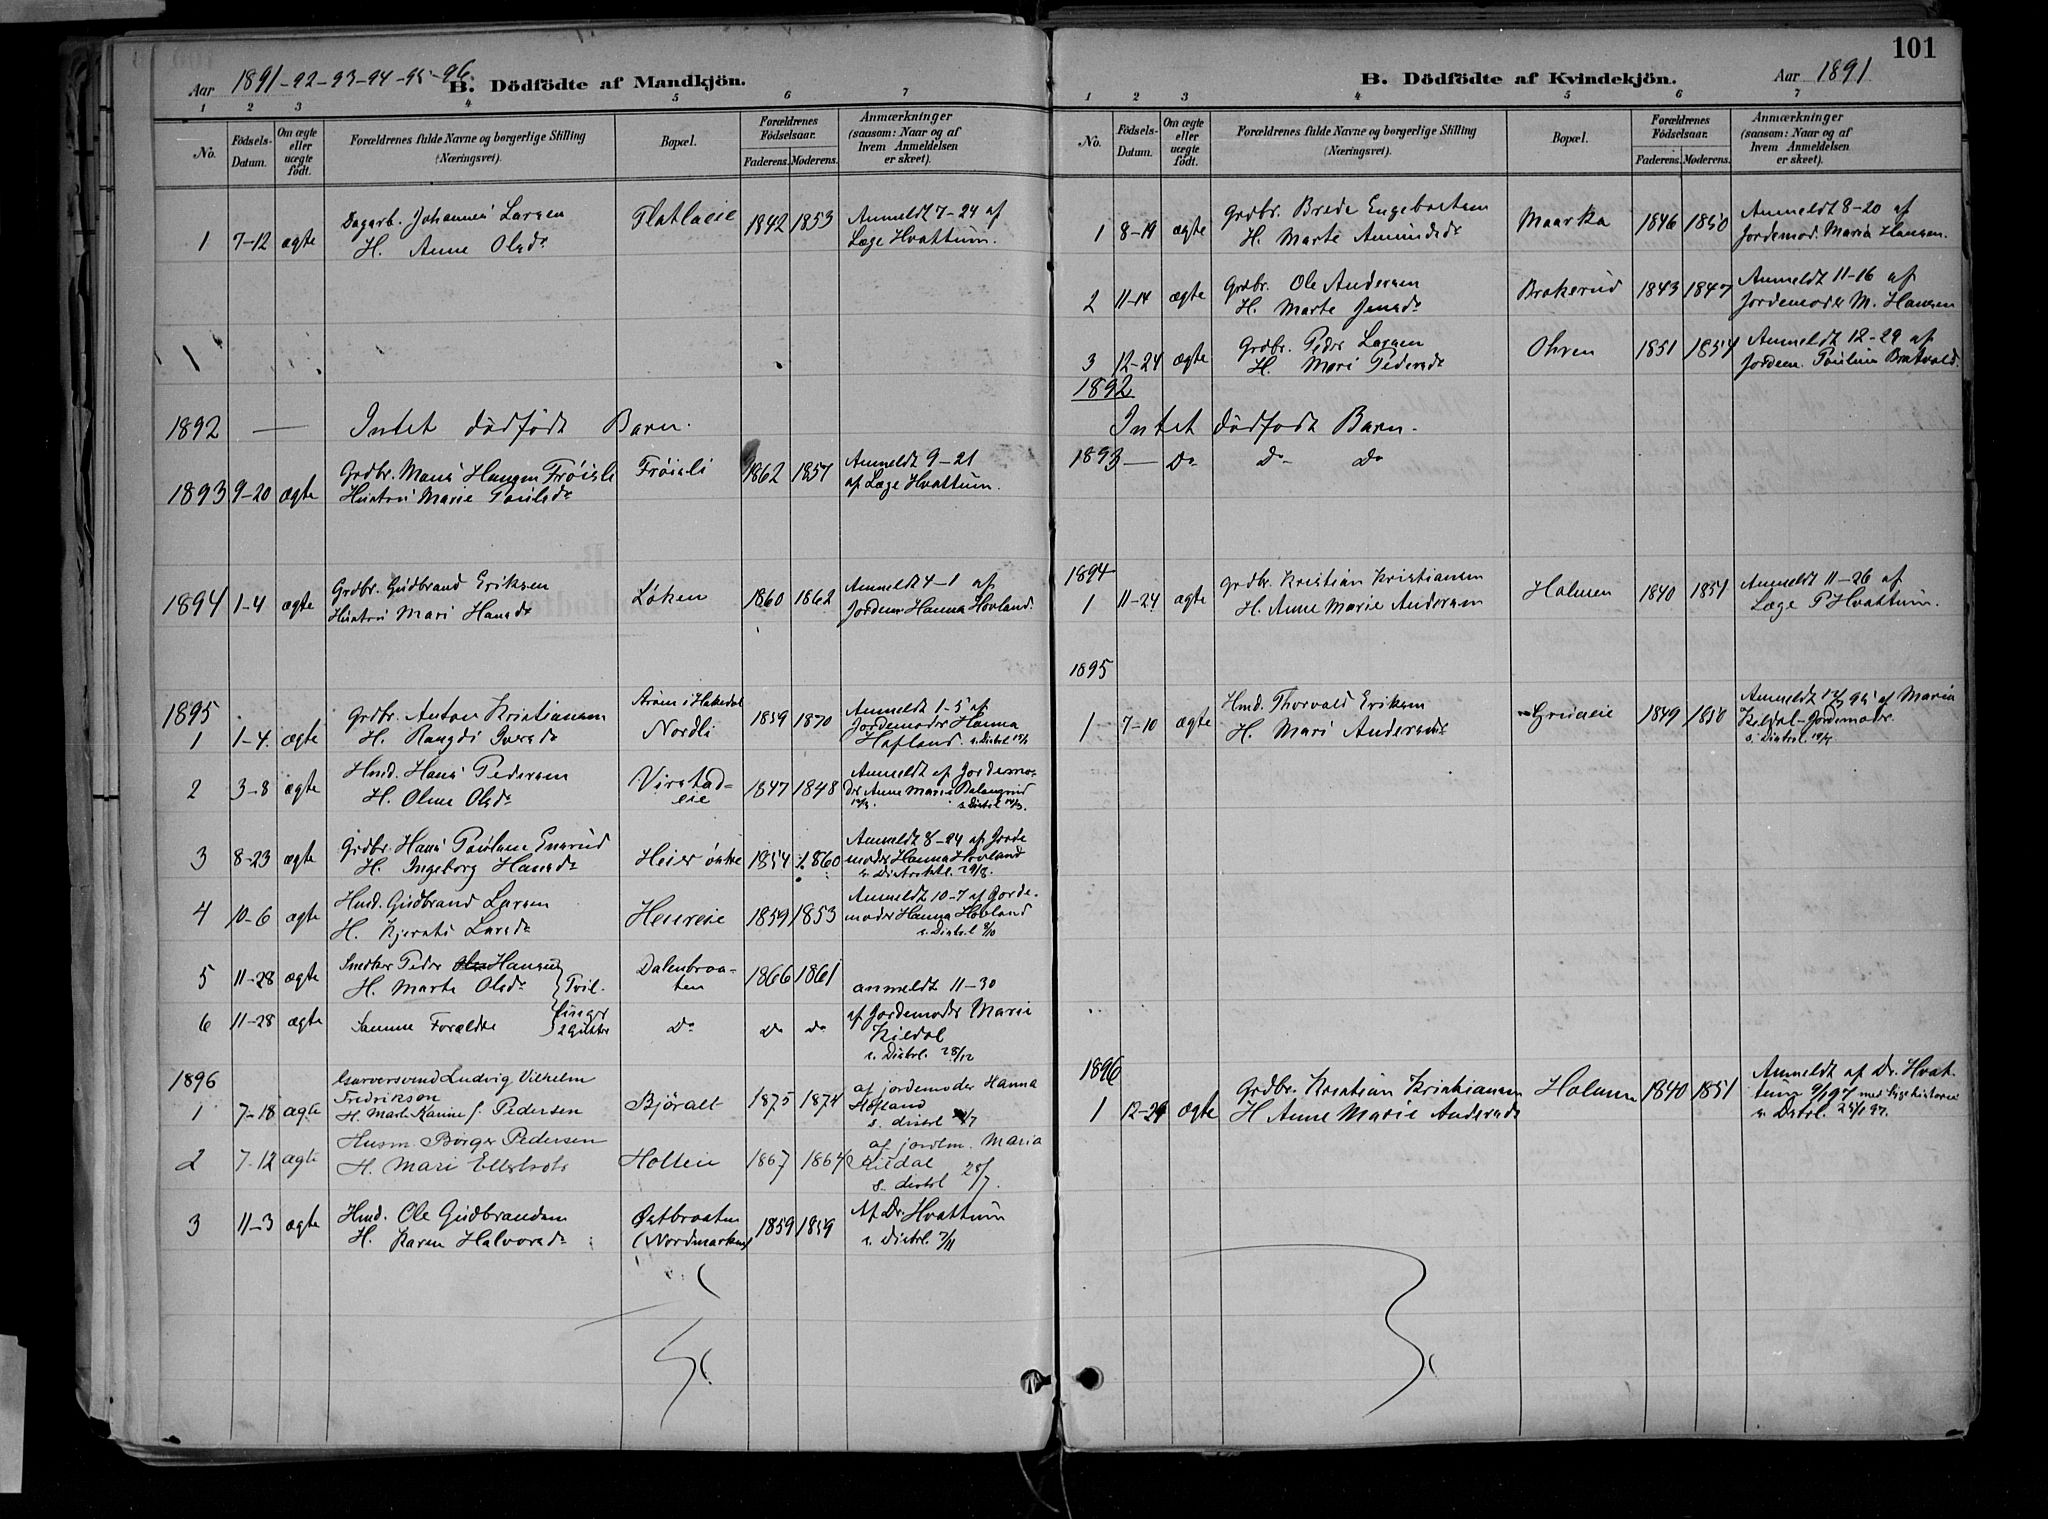 Aar 1891-92-93-94-95-96.
B. Dödfödte af Mandkjön.
1 2 3 4 5 6 7
No.
Födsels-Datum.
Om ægte eller uægte födt.
Forældrenes fulde Navne og borgerlige Stilling (Næringsvei).
Bopæl.
Forældrenes Födselsaar.
Faderens. Moderens.
Anmærkninger (saasom: Naar og af hvem Anmeldelsen er skeet).
1 7-12 ægte Dagarb. Johannes Larsen Flatlaeie 1842 1853 Anmeldt 7-24 af
H. Anne Olsdr Læge Hvattum.
1892 — Intet dödfødt Barn.
1893 9-20 ægte Grdbr. Hansen Frøisli Frøisli 1862 1857 Anmeldt 9-21
Hustru Marie Paulsdr af Læge Hvattum.
1894 1-4 ægte Grdbr. Gudbrand Eriksen Løken 1860 1862 Anmeldt 4-1 af
Hustru Mari Hansdr Jordemr Hanna Hovland.
1895
1 1-4. ægte Grdbr. Anton Kristiansen Strøm i Hakedal 1859 1870 Anmeldt 1-5 af
H. Rangdi Iversdr Nordli Jordemoder Hanna
Hofland. s. Distrl.
2 3-8 ægte Hmd. Hans Pedersen Virstad- 1847 1848 Anmeldt af Jordemo-
H. Oline Olsdr eie der Anne Marie
3 8-23 ægte Grdbr. Hans Paulsen Heier 1854 1860 Anmeldt 8-24 af Jorde
H. Ingeborg Hansdr moder Hanna Hovland
s. Distrktl. 29/8.
4 10-6 ægte Hmd. Gudbrand Larsen 1859 1853 Anmeldt 10-7 af Jorde-
H. Kjersti Larsdr moder Hanna Hovland
s. Distrl. 8/10
5 11-28 ægte Snedker Peder Hansen Tvil- Dalenbraa- 1866 1861
H. Marte Olsdr ten anmeldt 11-30
6 11-28 ægte Samme Foreldre linger 2 Gutter Do Do Do af Jordemoder Maria
Kildal
s. Distrl. 28/12
1896 Garversvend Ludvig Vilhelm af jordemoder Hanna
1 7-18 ægte Fredrikson Björalt 1875 1874 Hofland
H. Marte Karine f. Pedersen s. distrl
2 7.12 ægte Husm. Borger Pedersen Holteie 1867 1864 af jordm. Maria
H. Mari Kildal
s. distrl 28/7.
3 11-3 ægte Hmd. Ole Gudbrandsen Østbraaten 1859 1859 Af Dr. Hvattum
H. Karen Halvorsdr (Nordmarken) s. Distrl. 7/11
101
B. Dödfödte af Kvindekjön.
Aar 1891
1 2 3 4 5 6 7
No.
Födsels-Datum.
Om ægte eller uægte födt.
Forældrenes fulde Navne og borgerlige Stilling (Næringsvei).
Bopæl.
Forældrenes Födselsaar.
Faderens. Moderens.
Anmærkninger (saasom: Naar og af hvem Anmeldelsen er skeet).
1 8-19 ægte Grdbr. Brede Engebretsen Maarka 1846 1850 Anmeldt 8-20 af
H. Marte Amundsdr Jordemod. Maria Hansen.
2 11-14 ægte Grdbr. Ole Andersen Brakerud 1843 1847 Anmeldt 11-16 af
H. Marte Jensdr Jordemoder M. Hansen
3 12-24 ægte Grdbr. Peder Larsen Ohren 1851 1854 Anmeldt 12-29 af
H. Mari Pedersdr Jordem. Pauline Bratvold.
1892
Intet dödfødt Barn.
1893 — Do Do Do
1894
1 11-24 ægte Grdbr. Kristian Kristiansen Holmen 1840 1851 Anmeldt 11-26 af
H. Anne Marie Andersen Læge P Hvattum.
1895
1 7-10 ægte Hmd. Thorvald Eriksen 1849 1850 Anmeldt af Maria
H. Mari Andersdr Kildal-Jordemoder
s. Distrl.
1896
1 12-29 ægte Grdbr. Kristian Kristiansen Holmen 1840 1851 Anmeldt af Dr. Hvat-
H Anne Marie Andersdr tum 9/1 97 med Sygehistorie
s. Distrl.